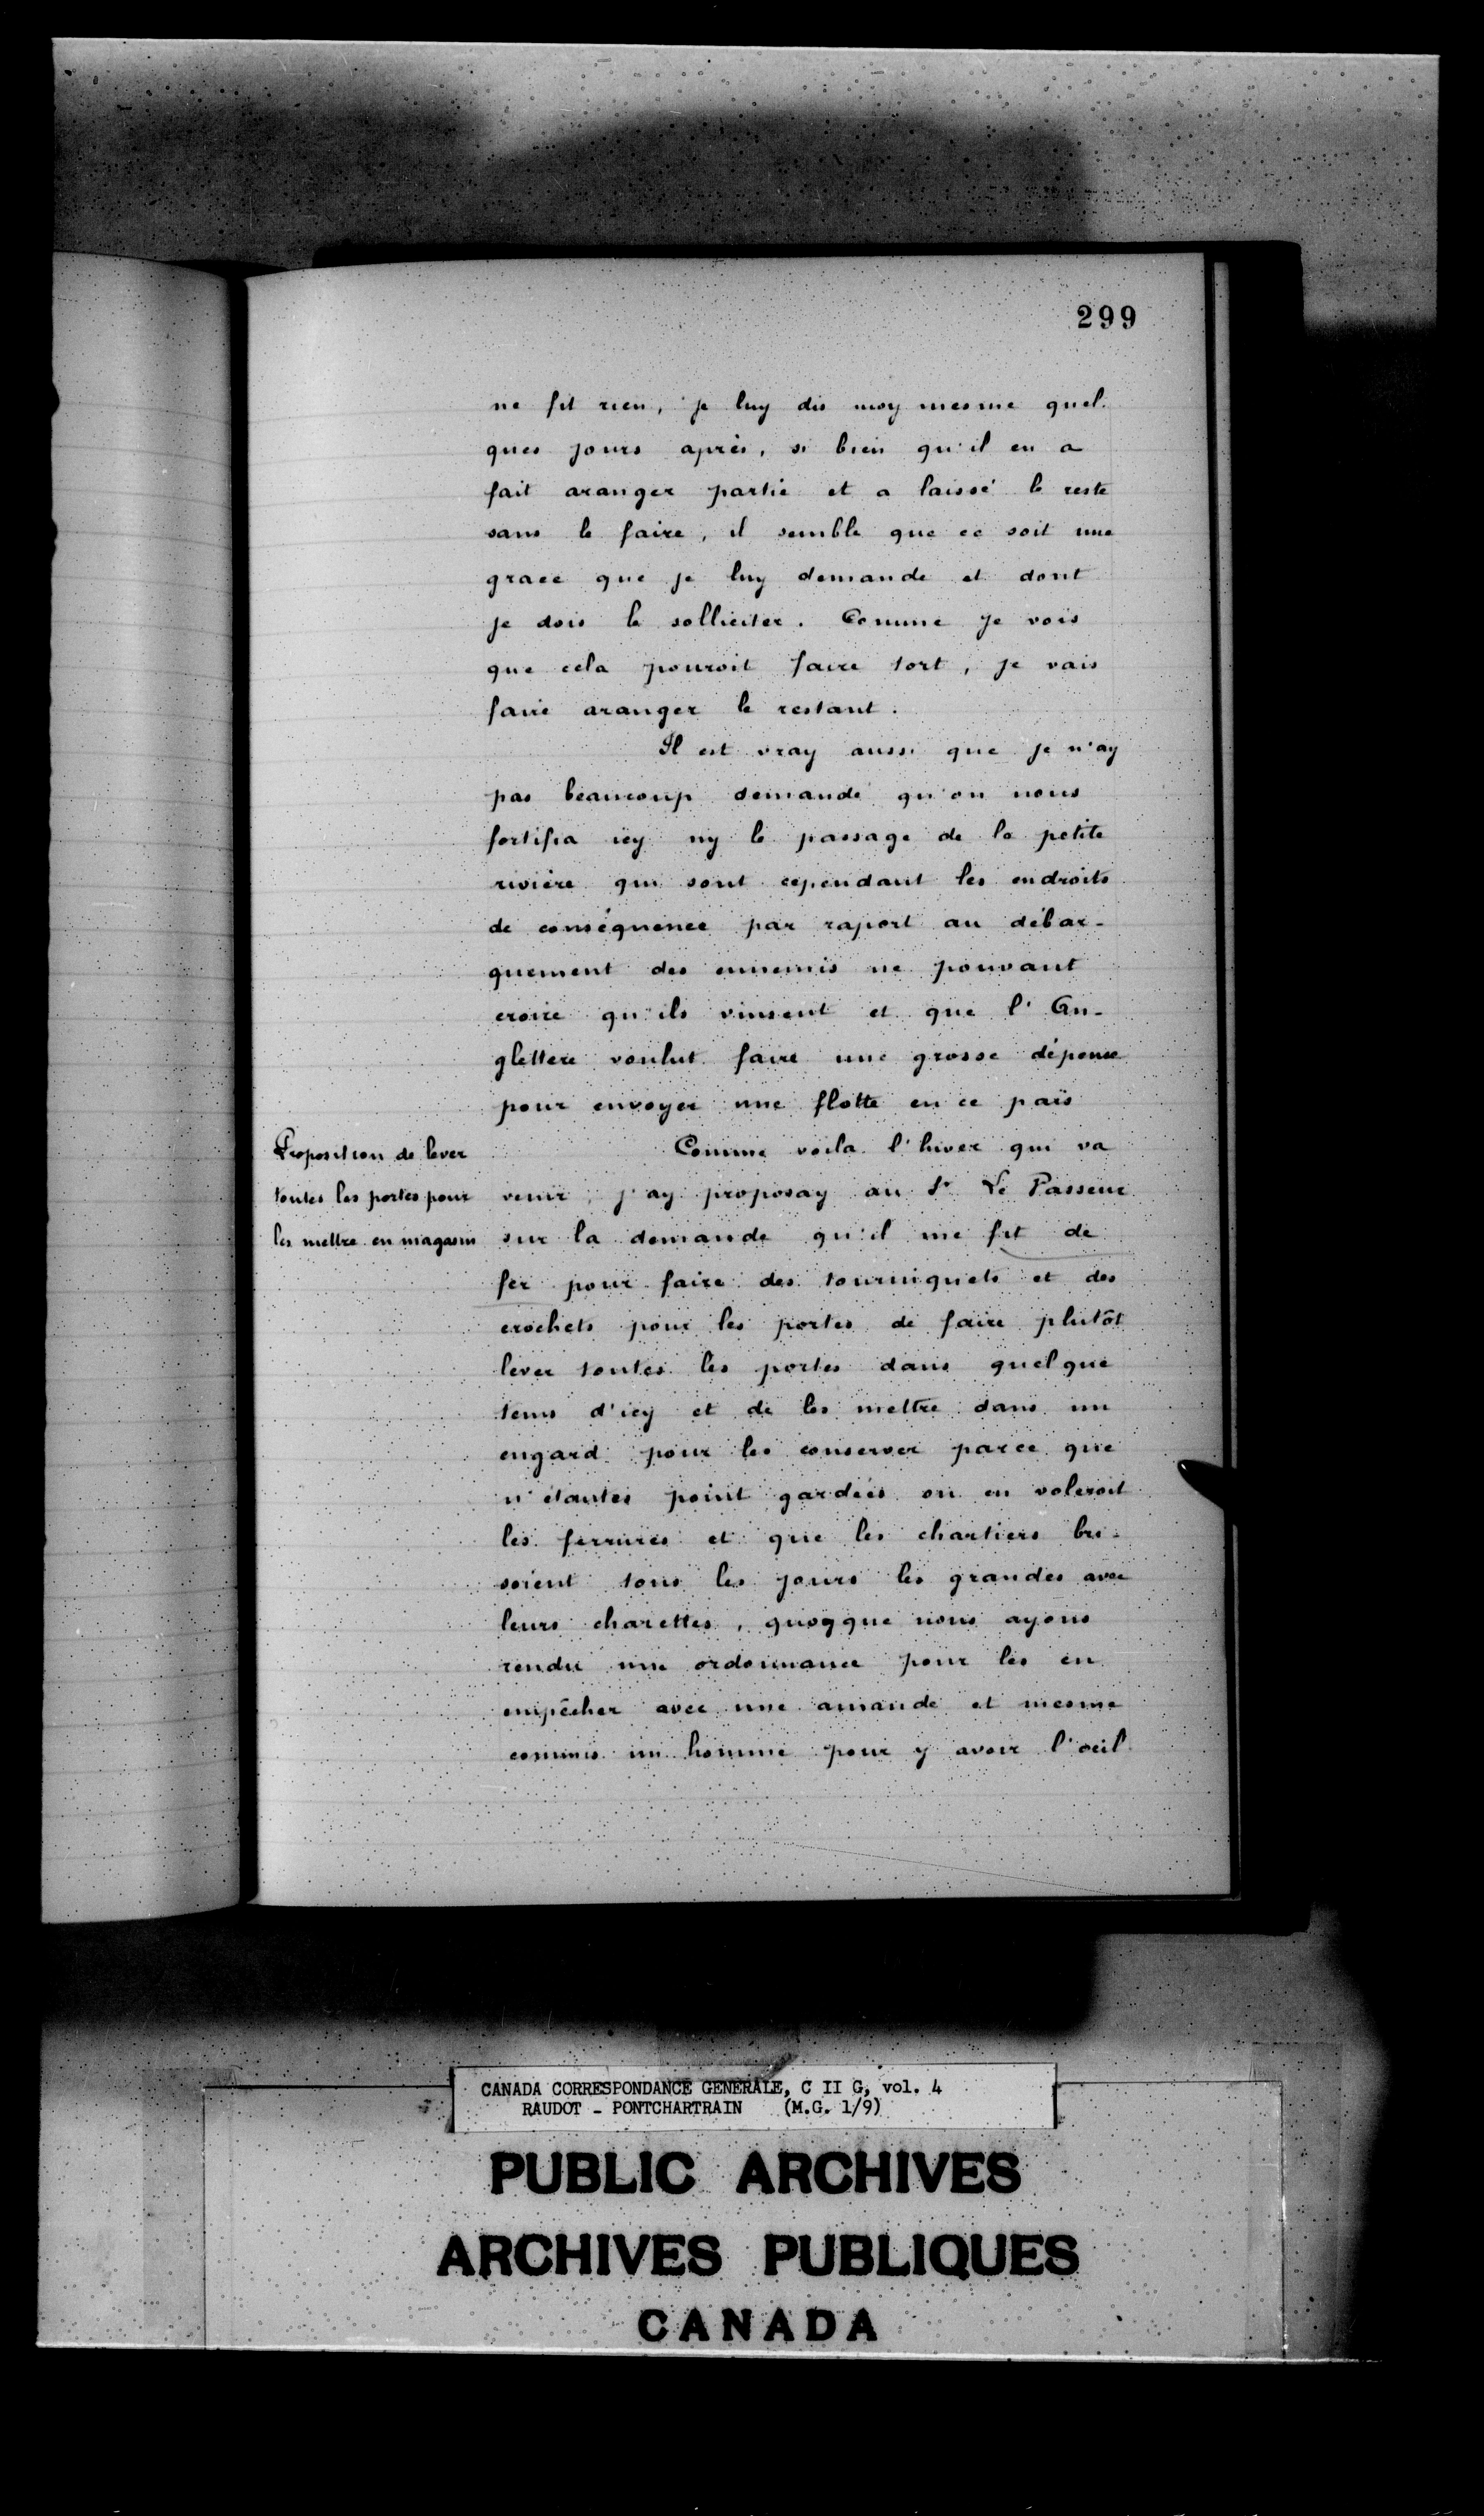 299
ne fit rien, je luy dis moy mesme quel-
ques jours après, si bien qu'il en a
fait aranger partie et a laissé le reste
sans le faire, il semble que ce soit une
grace que je luy demande et dont
je dois le solliciter. Comme je vois
que cela pouroit faire tort, je vais
faire aranger le restant.
Il est vray aussi que je n'ay
pas beaucoup demandé qu'on nous
fortifia icy ny le passage de la petite
rivière qui sont cependant les endroits
de conséquence par raport au débar-
quement des ennemis ne pouvant
croire qu'ils vinsent et que l'An-
glettere voulut faire une grosse dépense
pour envoyer une flotte en ce païs
Proposition de lever
toutes les portes pour
les mettre en magasin
Comme voila l'hiver qui va
venir, j'ay proposay au Sr Le Passeur
sur la demande qu'il me fit de
fer pour faire des tourniquets et des
crochets pour les portes de faire plutôt
lever toutes les portes dans quelque
tems d'icy et de les mettre dans un
engard pour les conserver parce que
n'étantes point gardées on en voleroit
les ferrures et que les chartiers bri-
soient tous les jours les grandes avec
leurs charettes, quoyque nous ayons
rendu une ordonnance pour les en
empêcher avec une amande et mesme
commis un homme pour y avoir l'oeil
CANADA CORRESPONDANCE GENERALE, C II G, vol. 4
RAUDOT - PONTCHARTRAIN (M.G. 1/9)
PUBLIC ARCHIVES
ARCHIVES PUBLIQUES
CANADA